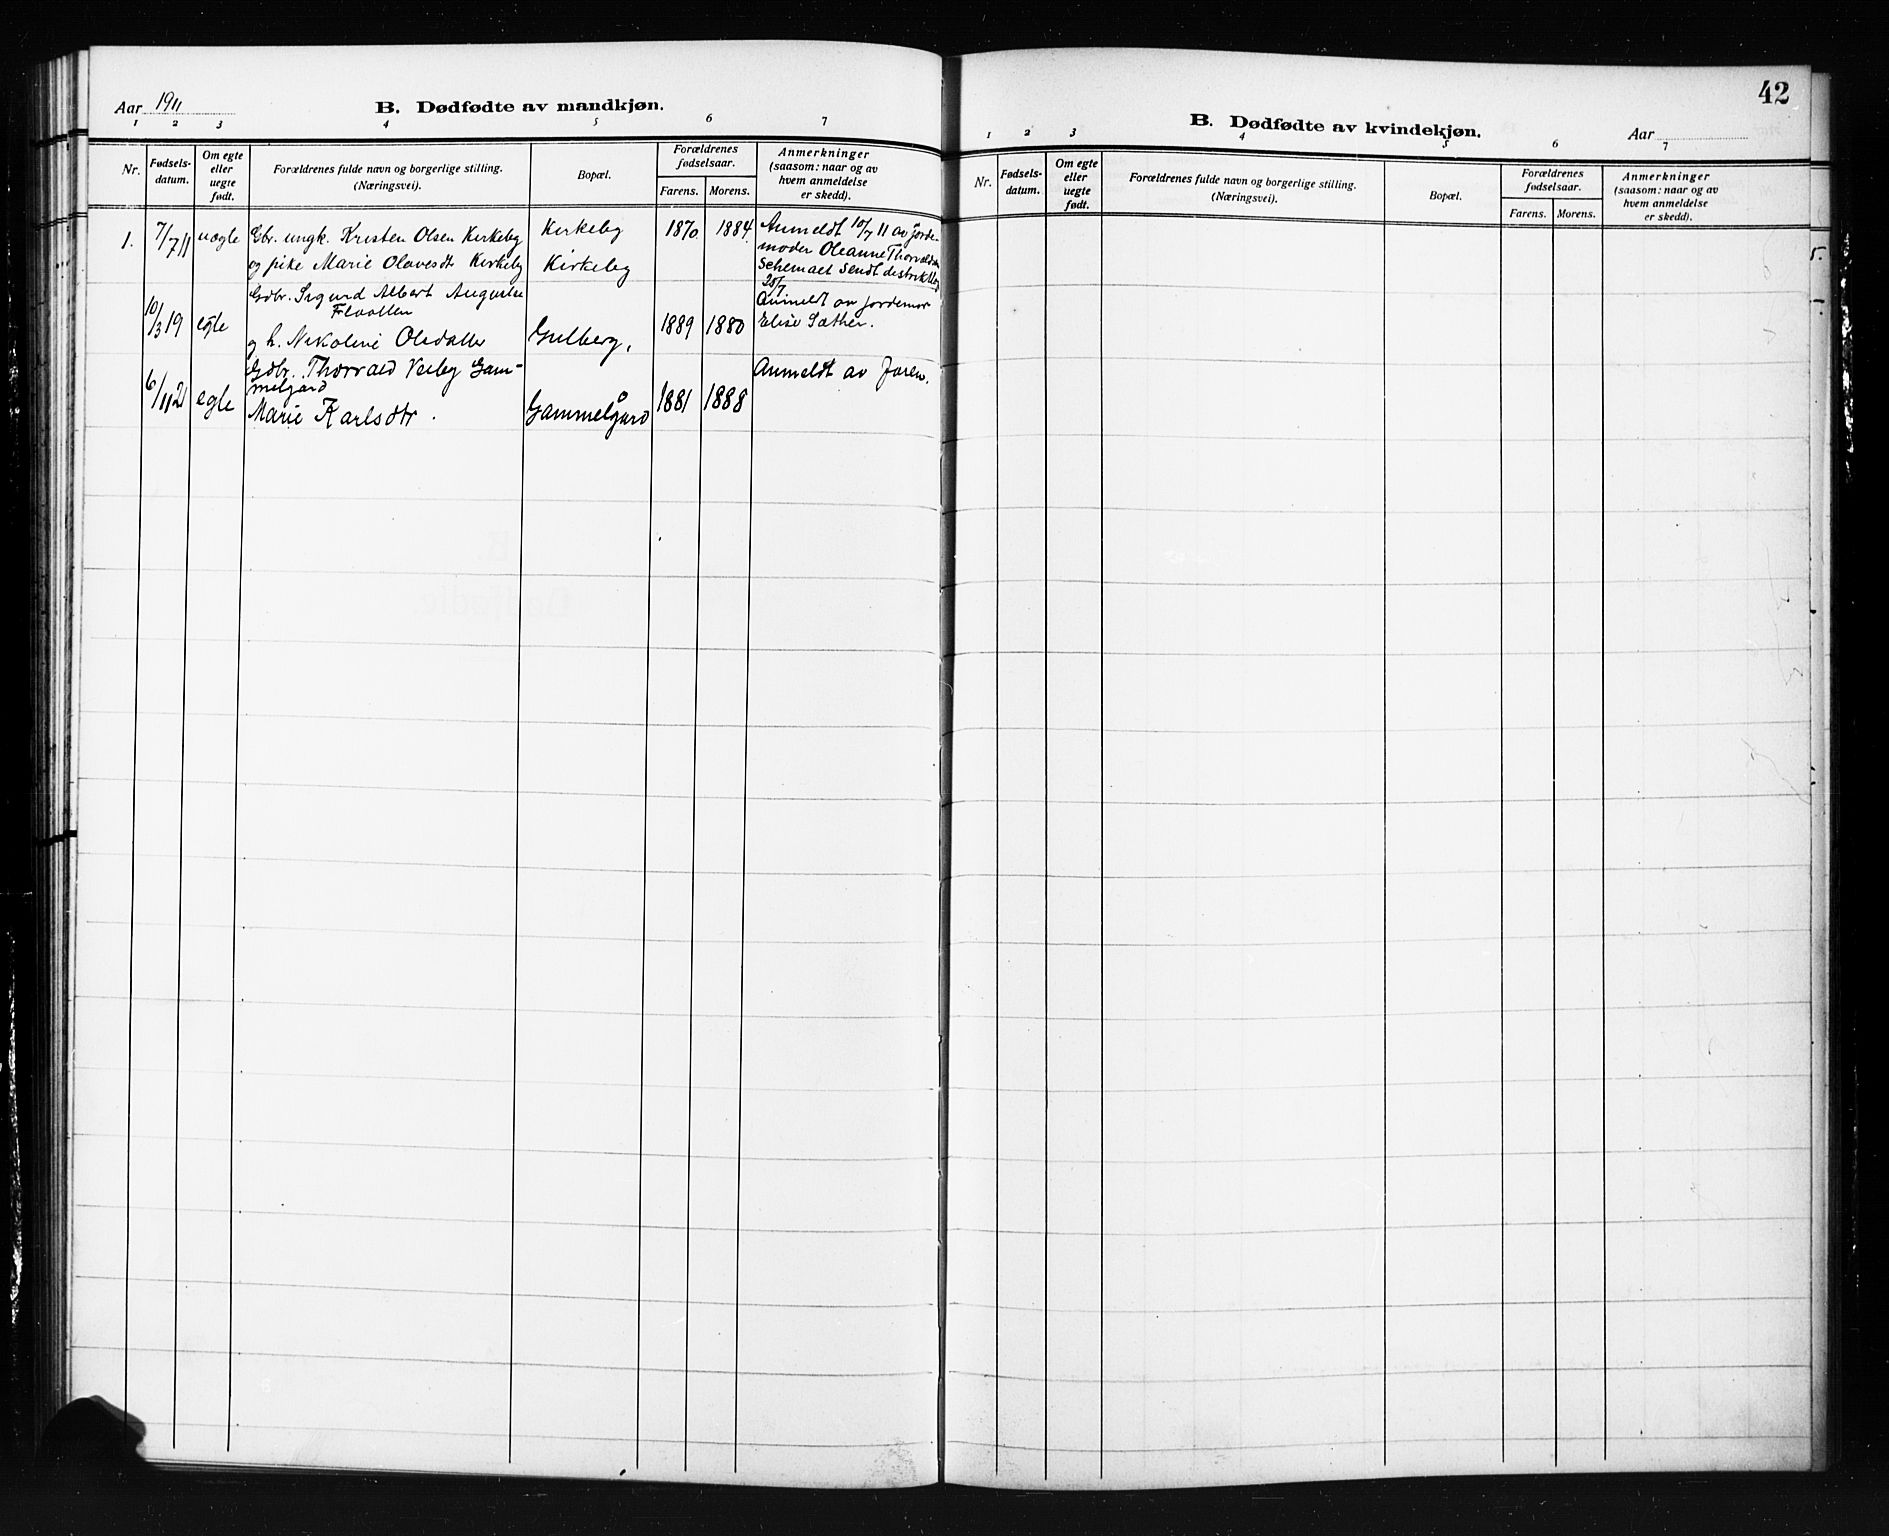 Aar 1911
B. Dødfødte av mandkjøn.
1 2 3 4 5 6 7
Nr.
Fødsels-
datum.
Om egte
eller
uegte
født.
Forældrenes fulde navn og borgerlige stilling.
(Næringsvei).
Bopæl.
Forældrenes
fødselsaar.
Farens. Morens.
Anmerkninger
(saasom: naar og av
hvem anmeldelse
er skedd).
1. 7/7 11 uegte Gbr. ungk. Kristen Olsen Kirkeby Kirkeby 1870. 1884. Anmeldt 10/7 11 av Jorde-
og pike Marie Olavesdt Kirkeby Kirkeby moder Oleanne
Schemaet sendt
25/7
10/3 19 egte Gdbr. Sigurd Albert
og h. Nikoline 1889 1880 Anmeldt av jordemor
Elise Sæther.
6/11 21 egte Gdbr. Thorvald Veiby Gam-
melgard
Marie Karlsdtr. Gammelgård 1881 1888 Anmeldt av faren.
42
B. Dødfødte av kvindekjøn.
Aar
1 2 3 4 5 6 7
Nr.
Fødsels-
datum.
Om egte
eller
uegte
født.
Forældrenes fulde navn og borgerlige stilling.
(Næringsvei).
Bopæl.
Forældrenes
fødselsaar.
Farens. Morens.
Anmerkninger
(saasom: naar og av
hvem anmeldelse
er skedd).